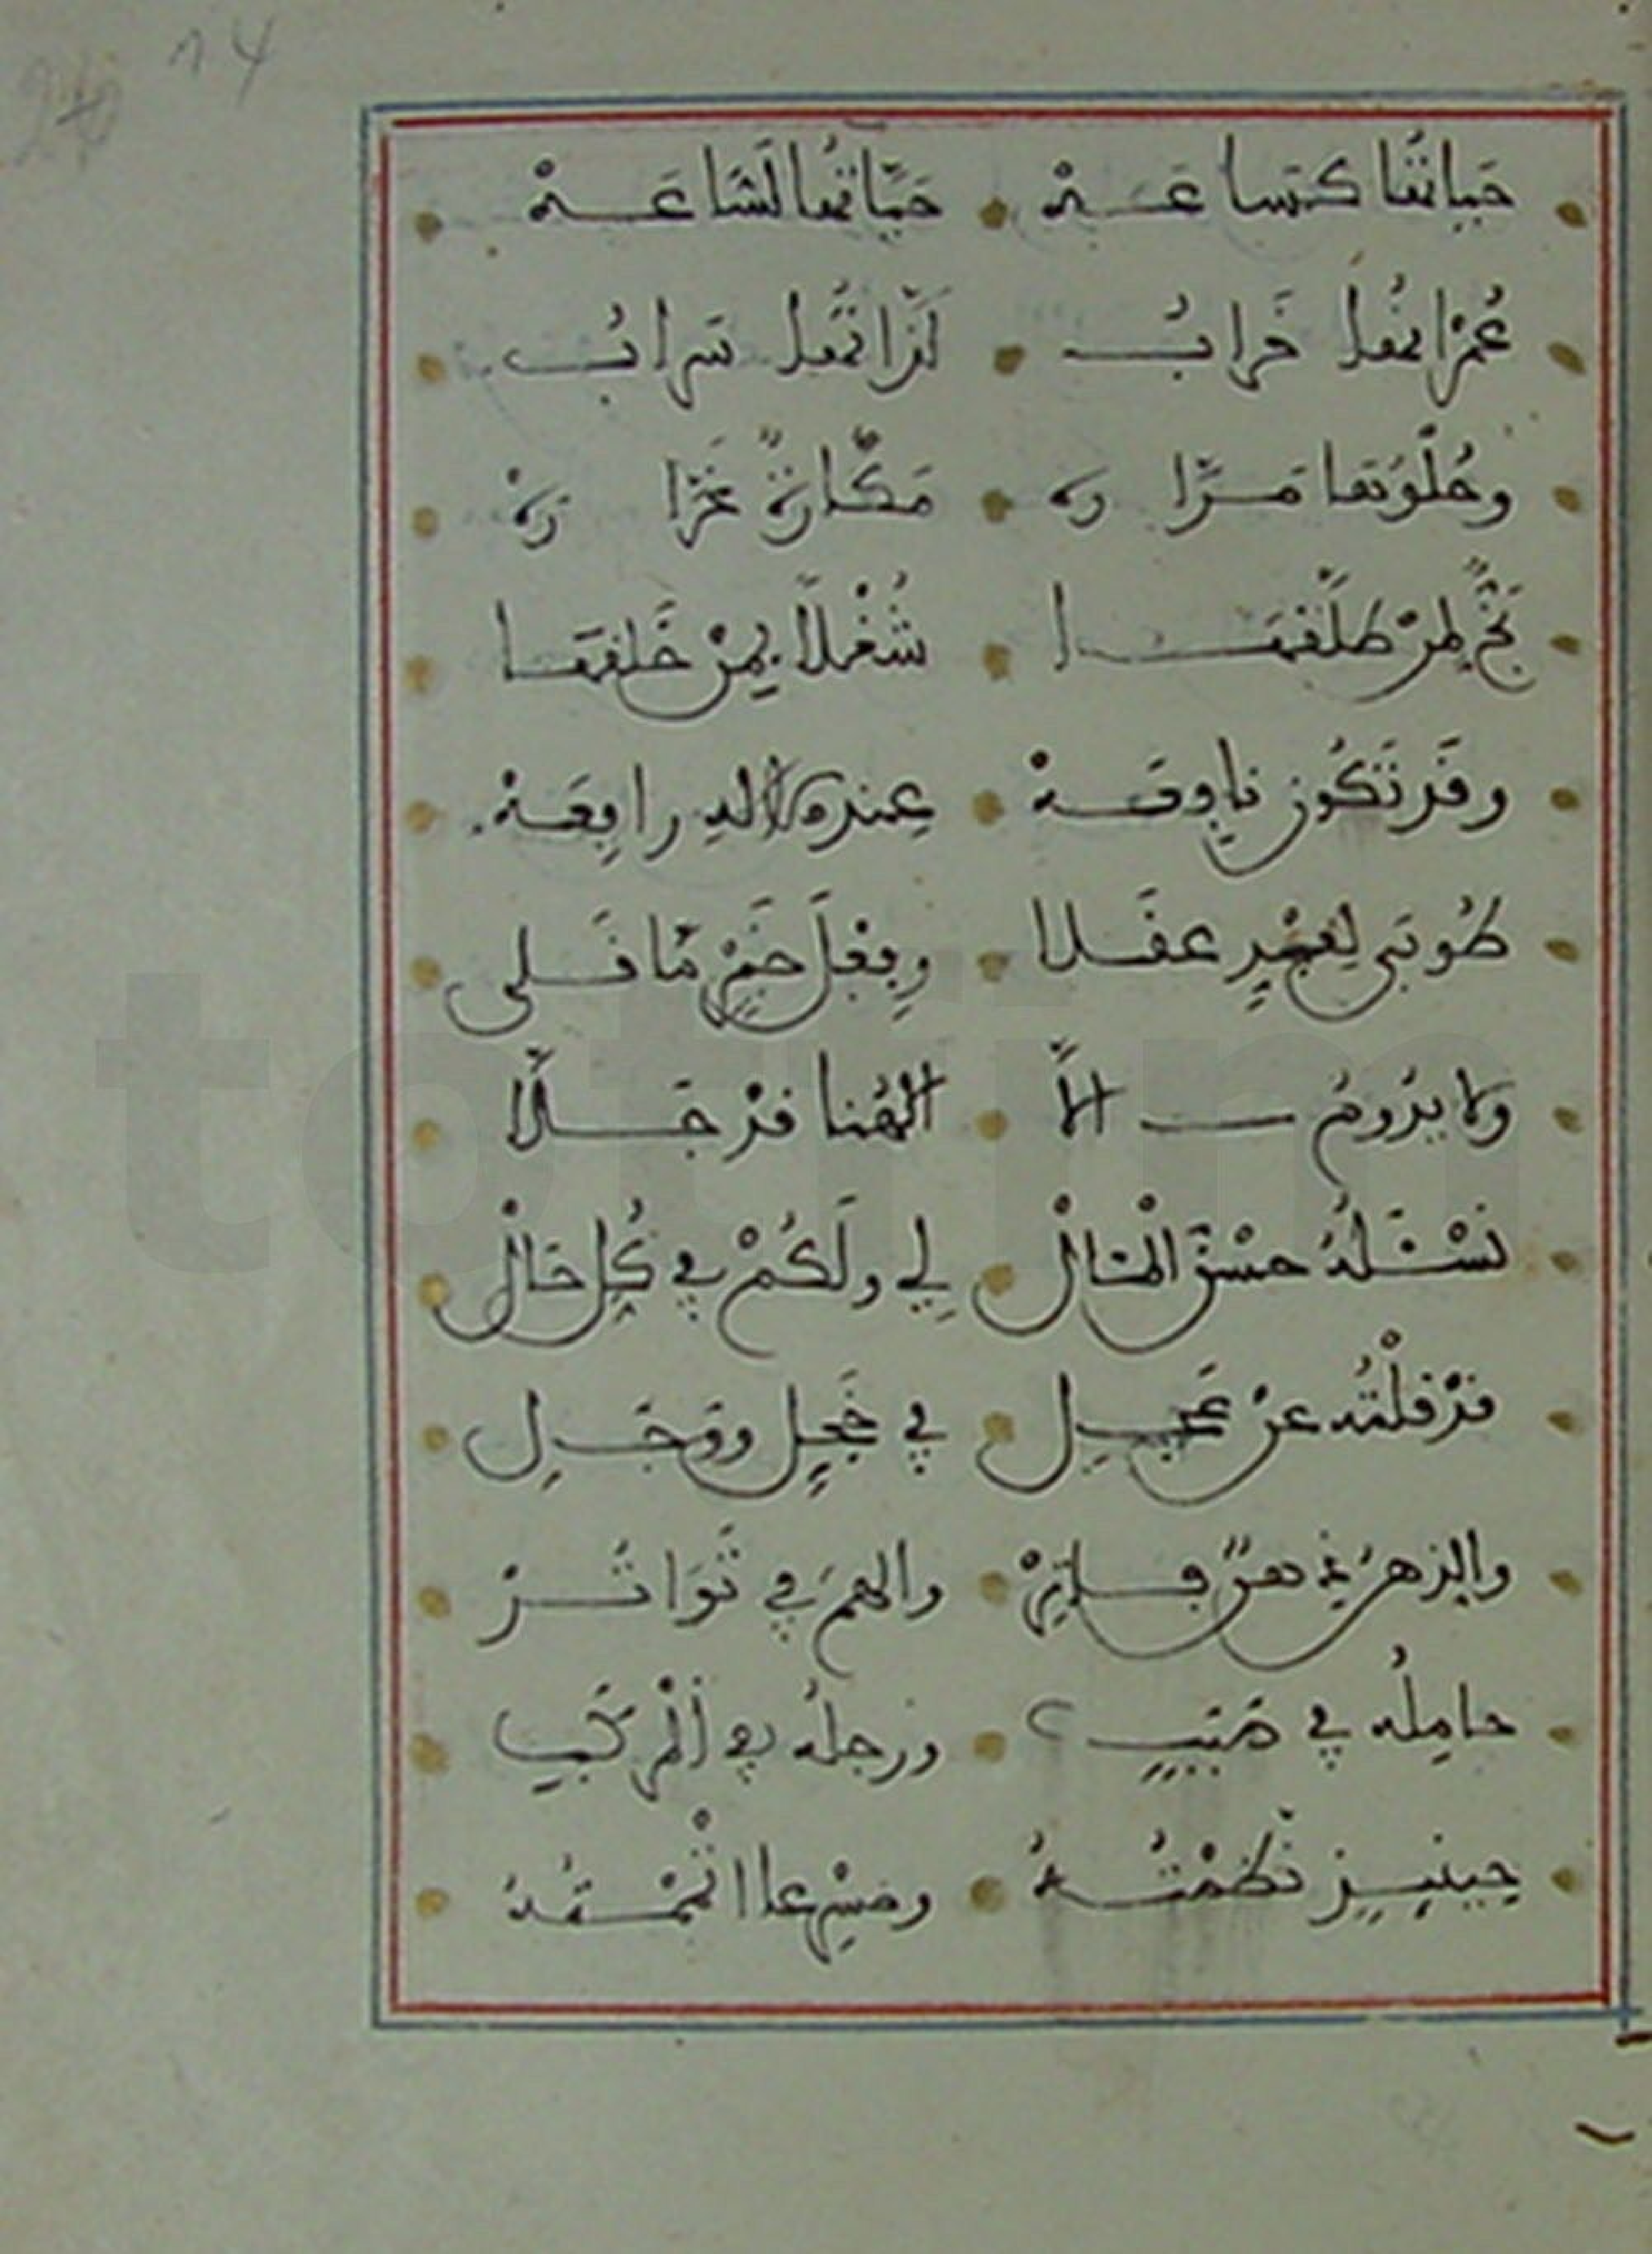 14
حَياتُها كَسَاعَهْ حَيَّاتُها لَسَّاعَهْ
عُمْرانُها خَرابُ لَذَّاتُها سَرابُ
وحُلْوُها مَرَّارَه مَكَّارةٌ غَرَّارَهْ
لِمَنْ طَلَّقها شُغْلًا بِمَنْ خَلَقها
وقَدْ تَكُون نافِعَهْ عِنْدَ الإلهِ رافِعَهْ
طُوبَى لِعَبْدٍ عَقَلا وفِعْلَ خَيْرٍ مَا قَلى
ولا يَدُومُ إلَّا إلهُنا قَدْ جَلَّا
نَسْئَلُهُ حسْنَ الْمَئالْ لِي ولَكُمْ في كُلِّ حَالْ
قَدْ قلْتُه عنْ عَجَلِ في خَجَلٍ ووَجَلِ
والذهنُ في والهمّ في تَوَاتُرْ
حامِلُه في ورجلُه في الْمركَبِ
حِينَئِذٍ نَظَمْتُهُ
totfim